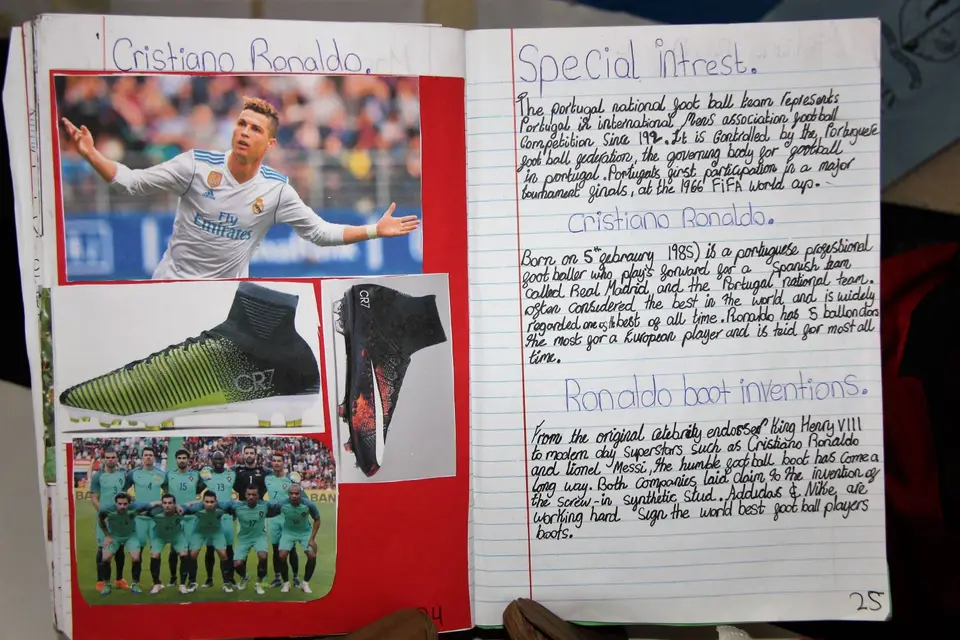 Cristiano Ronaldo.
Fly
Emirates
CR7
CR7
4
15
13
1
17
24
Special intrest.
The portugal national foot ball team represents
Portugal in international Mens association football
Competition Since 192. It is controlled by the Portuguese
foot ball federation, the governing body for football
in portugal. Portugals first participation in a major
tournament finals, at the 1966 FIFA world cup.
Cristiano Ronaldo.
Born on 5th febraury 1985) is a portuguese professional
foot baller who play's forward for a Spanish team
called Real Madrid and the Portugal national team.
often considered the best in the world and is widely
regarded one of the best of all time. Ronaldo has 5 ballondors
the most for a European player and is taid for most all
time.
Ronaldo boot inventions.
From the original celebrity endorser King Henry VIII
to modern day superstars such as Cristiano Ronaldo
and lionel Messi, the humble football boot has come a
long way. Both companies laid claim to the invention of
the screw-in synthetic stud. Addudas & Nike, are
working hard Sign the world best foot ball players
boots.
25